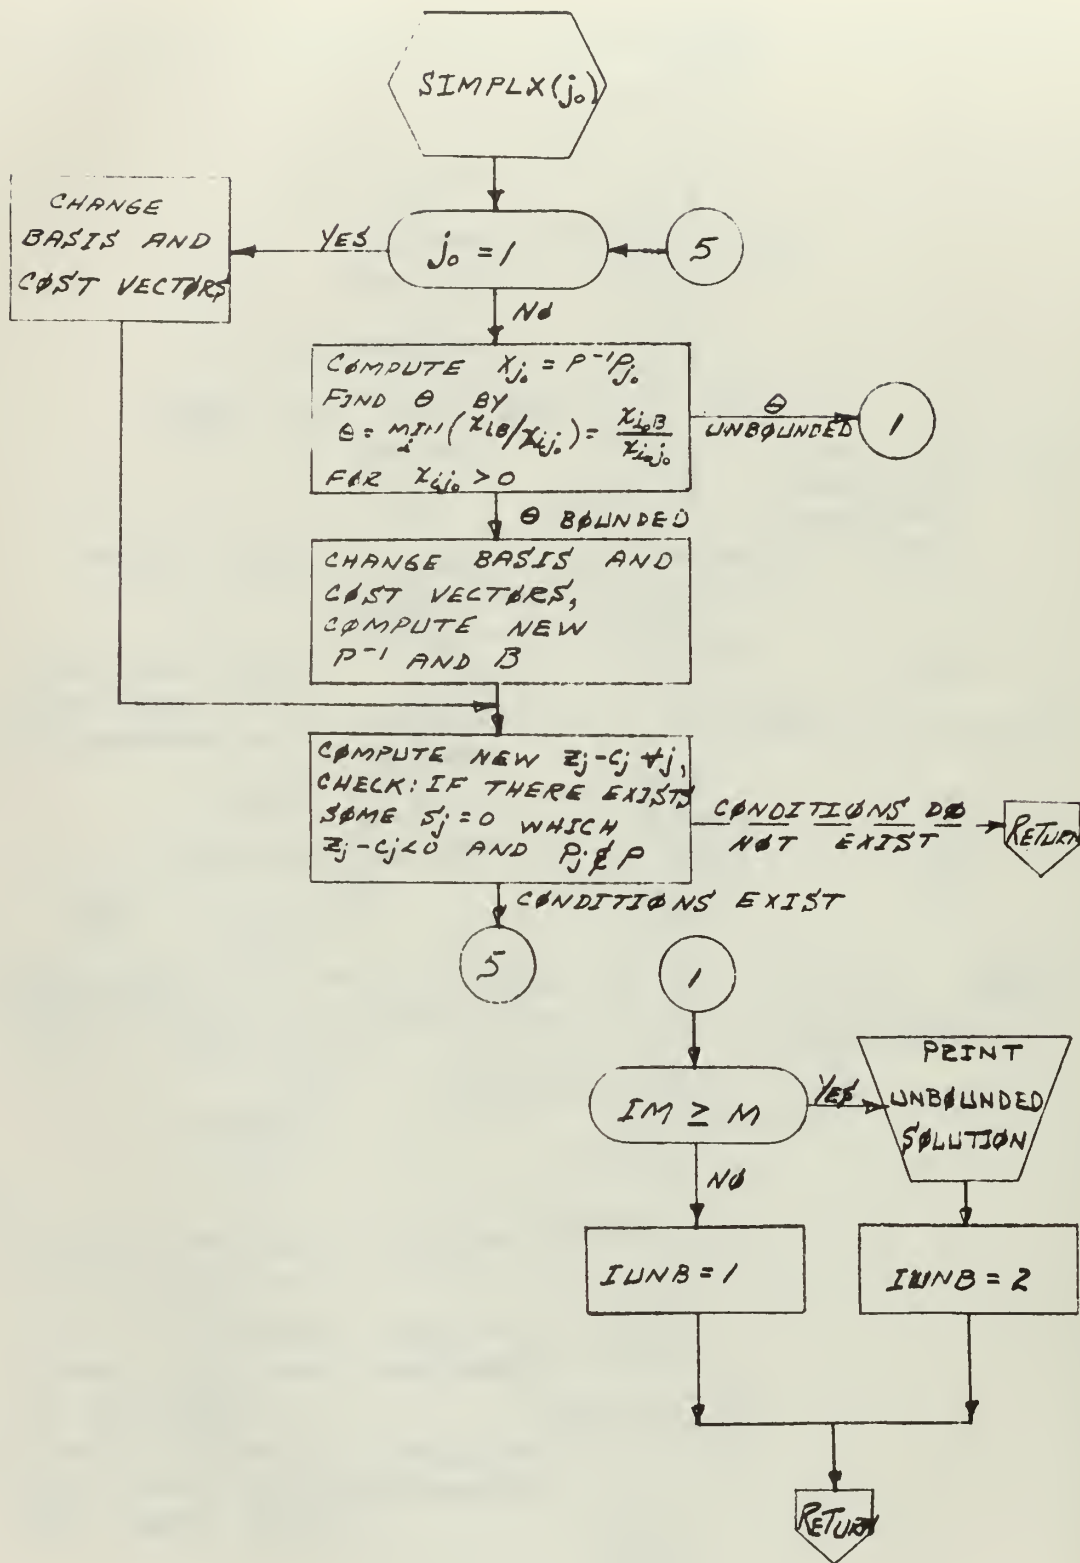 SIMPLX(j₀)
CHANGE
BASIS AND
CØST VECTØRS
YES
j₀ = 1
5
NØ
CØMPUTE X_j₀ = P⁻¹P_j₀
FIND Θ BY
Θ = MIN_i (x_iB/x_ij₀) = x_i₀B/x_i₀j₀
FØR x_ij₀ > 0
Θ
UNBØUNDED
1
Θ BØUNDED
CHANGE BASIS AND
CØST VECTØRS,
CØMPUTE NEW
P⁻¹ AND B
CØMPUTE NEW z_j - c_j ∀j,
CHECK: IF THERE EXISTS
SØME S_j = 0 WHICH
z_j - c_j < 0 AND P_j ∉ P
CØNDITIØNS DØ
NØT EXIST
RETURN
CØNDITIØNS EXIST
5
1
IM ≥ M
YES
PRINT
UNBØUNDED
SØLUTIØN
NØ
IUNB = 1
IUNB = 2
RETURN